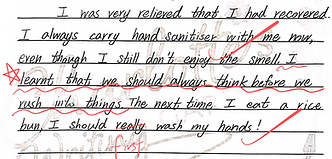 I was very relieved that I had recovered.
I always carry hand sanitiser with me now,
even though I still don't enjoy the smell. I
learnt that we should always think before we
rush into things. The next time I eat a rice
bun, I should really wash my hands!
first